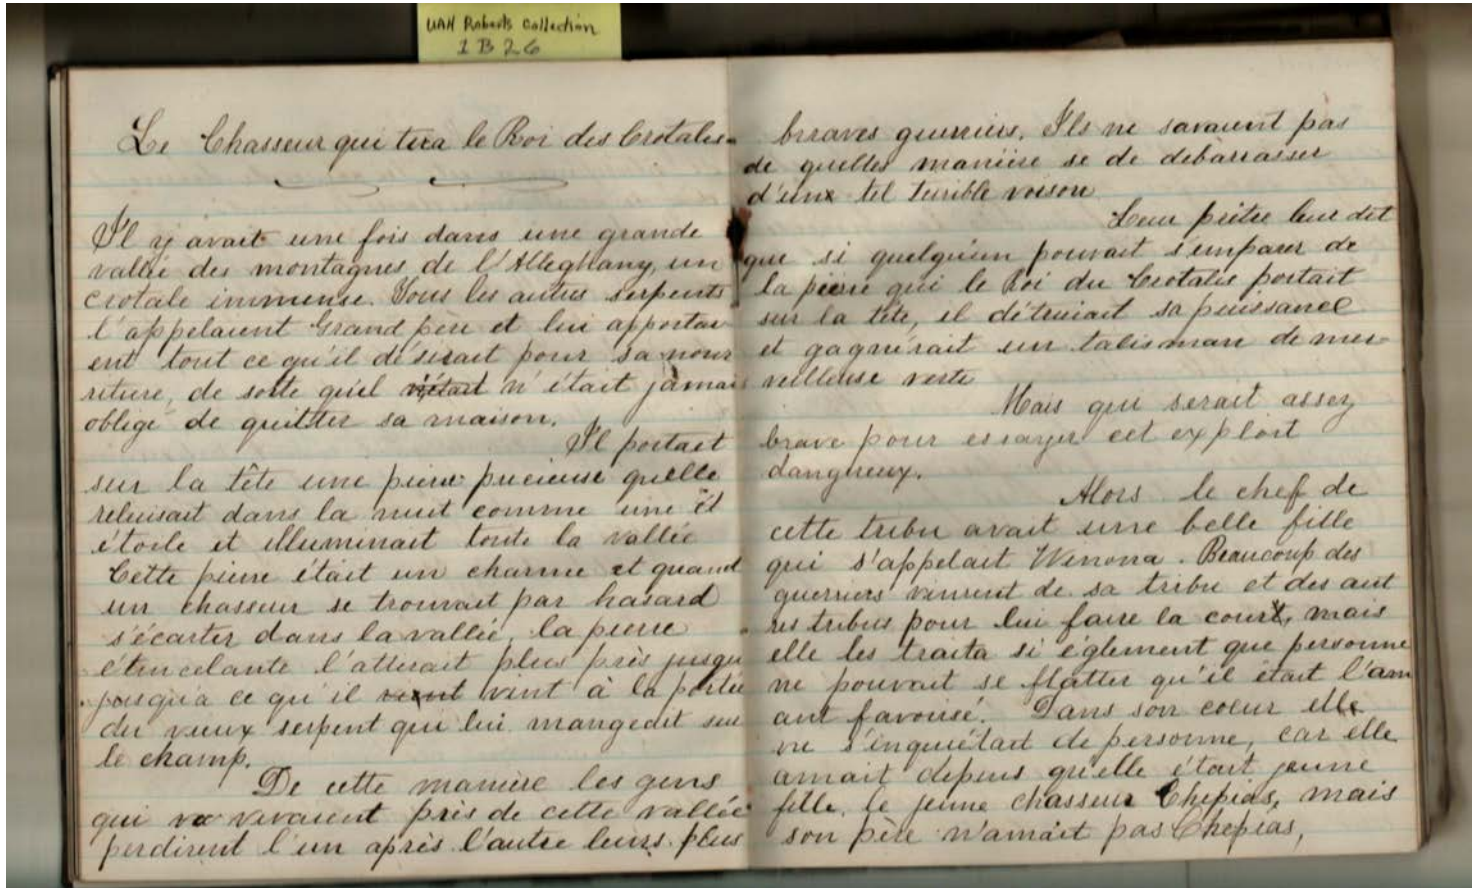 UAH Roberts Collection
1 B 26
Le Chasseur qui tua le Roi des Crotales
Il y avait une fois dans une grande
vallée des montagnes de l'Alleghany, un
crotale immense. Tous les autres serpents
l'appelaient Grand père et lui apportai
ent tout ce qu'il désirait pour sa nour
riture, de sorte qu'il n'était n'était jamais
obligé de quitter sa maison.
Il portait
sur la tête une pierre precieuse quelle
reluisait dans la nuit comme une ét
étoile et illuminait toute la vallée
Cette pierre était un charme et quand
un chasseur se trouvait par hasard
s'écarter dans la vallée, la pierre
étencelante l'atterait plus près jusqu
jusqu'a ce qu'il vint à la portée
du vieux serpent qui lui mangeait sur
le champ.
De cette manière les gens
qui vivaient près de cette vallée
perdirent l'un après l'autre leurs plus
braves guerriers. Ils ne savaient pas
de quelles manière se de débarrasser
d'un tel terrible voison
Leur prêtre leur dit
que si quelqu'un pouvait s'emparer de
la pierre qui le Roi du Crotales portait
sur la tête, il détruirait sa puissance
et gagnerait un talisman de mer
veilleuse verte
Mais qui serait assez
brave pour essayer cet exploit
dangreux.
Alors le chef de
cette tribu avait une belle fille
qui s'appelait Wenona. Beaucoup des
guerriers vinrent de sa tribu et des aut
res tribus pour lui faire la cour, mais
elle les traita si églement que personne
ne pouvait se flatter qu'il était l'am
ant favorisé. Dans son coeur elle
ne s'inquiétait de personne, car elle
amait depuis qu'elle était jeune
fille, le jeune chasseur Chepias, mais
son père n'amait pas Chepias,